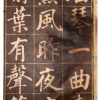 琴一曲
風昨夜
葉有聲